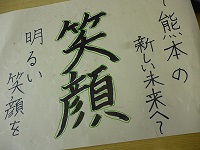 〜熊本の
新しい未来へ〜
笑顔
明るい
笑顔を